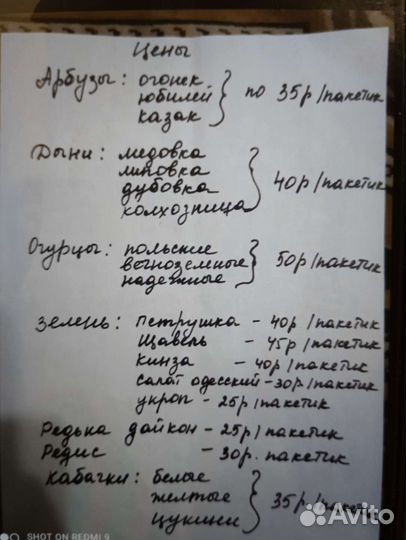 Цены
Арбузы: огонек
юбилей } по 35р/пакетик
казак
Дыни: медовка
липовка
дубовка } 40р/пакетик
колхозница
Огурцы: польские
вьноземные } 50р/пакетик
надежные
Зелень: Петрушка - 40р/пакетик
Щавель - 45р/пакетик
Кинза - 40р/пакетик
Салат одесский - 30р/пакетик
укроп - 25р/пакетик
Редька дайкон - 25р/пакетик
Редис - 30р. пакетик
Кабачки: белые
желтые } 35р/пакетик
цукини
SHOT ON REDMI 9
Avito